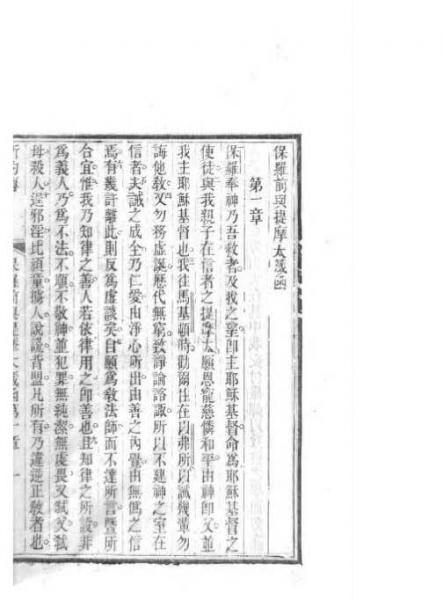 保羅前與提摩太函
第一章
保羅奉神乃吾救者及我之望卽主耶穌基督命為耶穌基督之
使徒與我親子在信者之提摩太願恩寵慈憐和平由神卽父並
我主耶穌基督也我往馬基頓時勸爾住在以弗所以誡幾輩勿
誨他教又勿務虛誕歷代無窮致諍論說以不建神之室在
信者夫誡之成全乃仁愛由淨心所出由善之內覺由無偽之信
焉有幾許離此則反為虛談矣自願為教法師而不達所言暨所
合宜惟我乃知律之善人若依律用之卽善也且知律之所設非
為義人乃為不法不順不敬神並犯罪無純潔無虔畏又弒父弒
母殺人邪淫比頑童擄人說謊背盟凡所有乃違逆正教者也
第一章 一